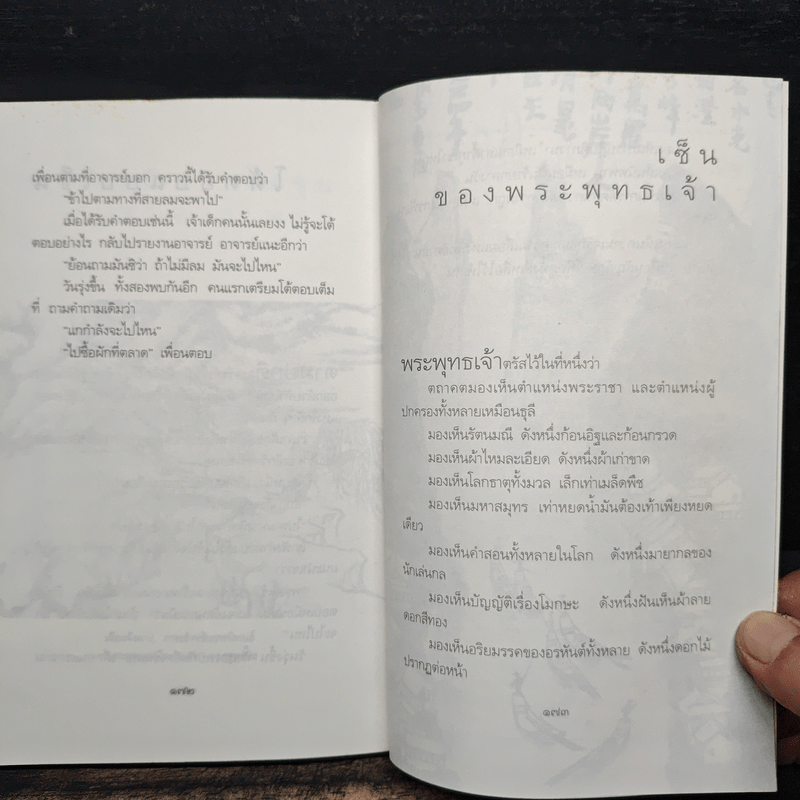 เพื่อนตามที่อาจารย์บอก คราวนี้ได้รับคำตอบว่า
"ข้าไปตามทางที่สายลมจะพาไป"
เมื่อได้รับคำตอบเช่นนี้ เจ้าเด็กคนนั้นเลยงง ไม่รู้จะโต้
ตอบอย่างไร กลับไปรายงานอาจารย์ อาจารย์แนะอีกว่า
"ย้อนถามมันซิว่า ถ้าไม่มีลม มันจะไปไหน"
วันรุ่งขึ้น ทั้งสองพบกันอีก คนแรกเตรียมโต้ตอบเต็ม
ที่ ถามคำถามเดิมว่า
"แกกำลังจะไปไหน"
"ไปซื้อผักที่ตลาด" เพื่อนตอบ
๑๗๒
เซ็น
ของพระพุทธเจ้า
พระพุทธเจ้าตรัสไว้ในที่หนึ่งว่า
ตถาคตมองเห็นตำแหน่งพระราชา และตำแหน่งผู้
ปกครองทั้งหลายเหมือนธุลี
มองเห็นรัตนมณี ดังหนึ่งก้อนอิฐและก้อนกรวด
มองเห็นผ้าไหมละเอียด ดังหนึ่งผ้าเก่าขาด
มองเห็นโลกธาตุทั้งมวล เล็กเท่าเมล็ดพืช
มองเห็นมหาสมุทร เท่าหยดน้ำมันต้องเท้าเพียงหยด
เดียว
มองเห็นคำสอนทั้งหลายในโลก ดังหนึ่งมายากลของ
นักเล่นกล
มองเห็นบัญญัติเรื่องโมกษะ ดังหนึ่งฝันเห็นผ้าลาย
ดอกสีทอง
มองเห็นอริยมรรคของอรหันต์ทั้งหลาย ดังหนึ่งดอกไม้
ปรากฏต่อหน้า
๑๗๓